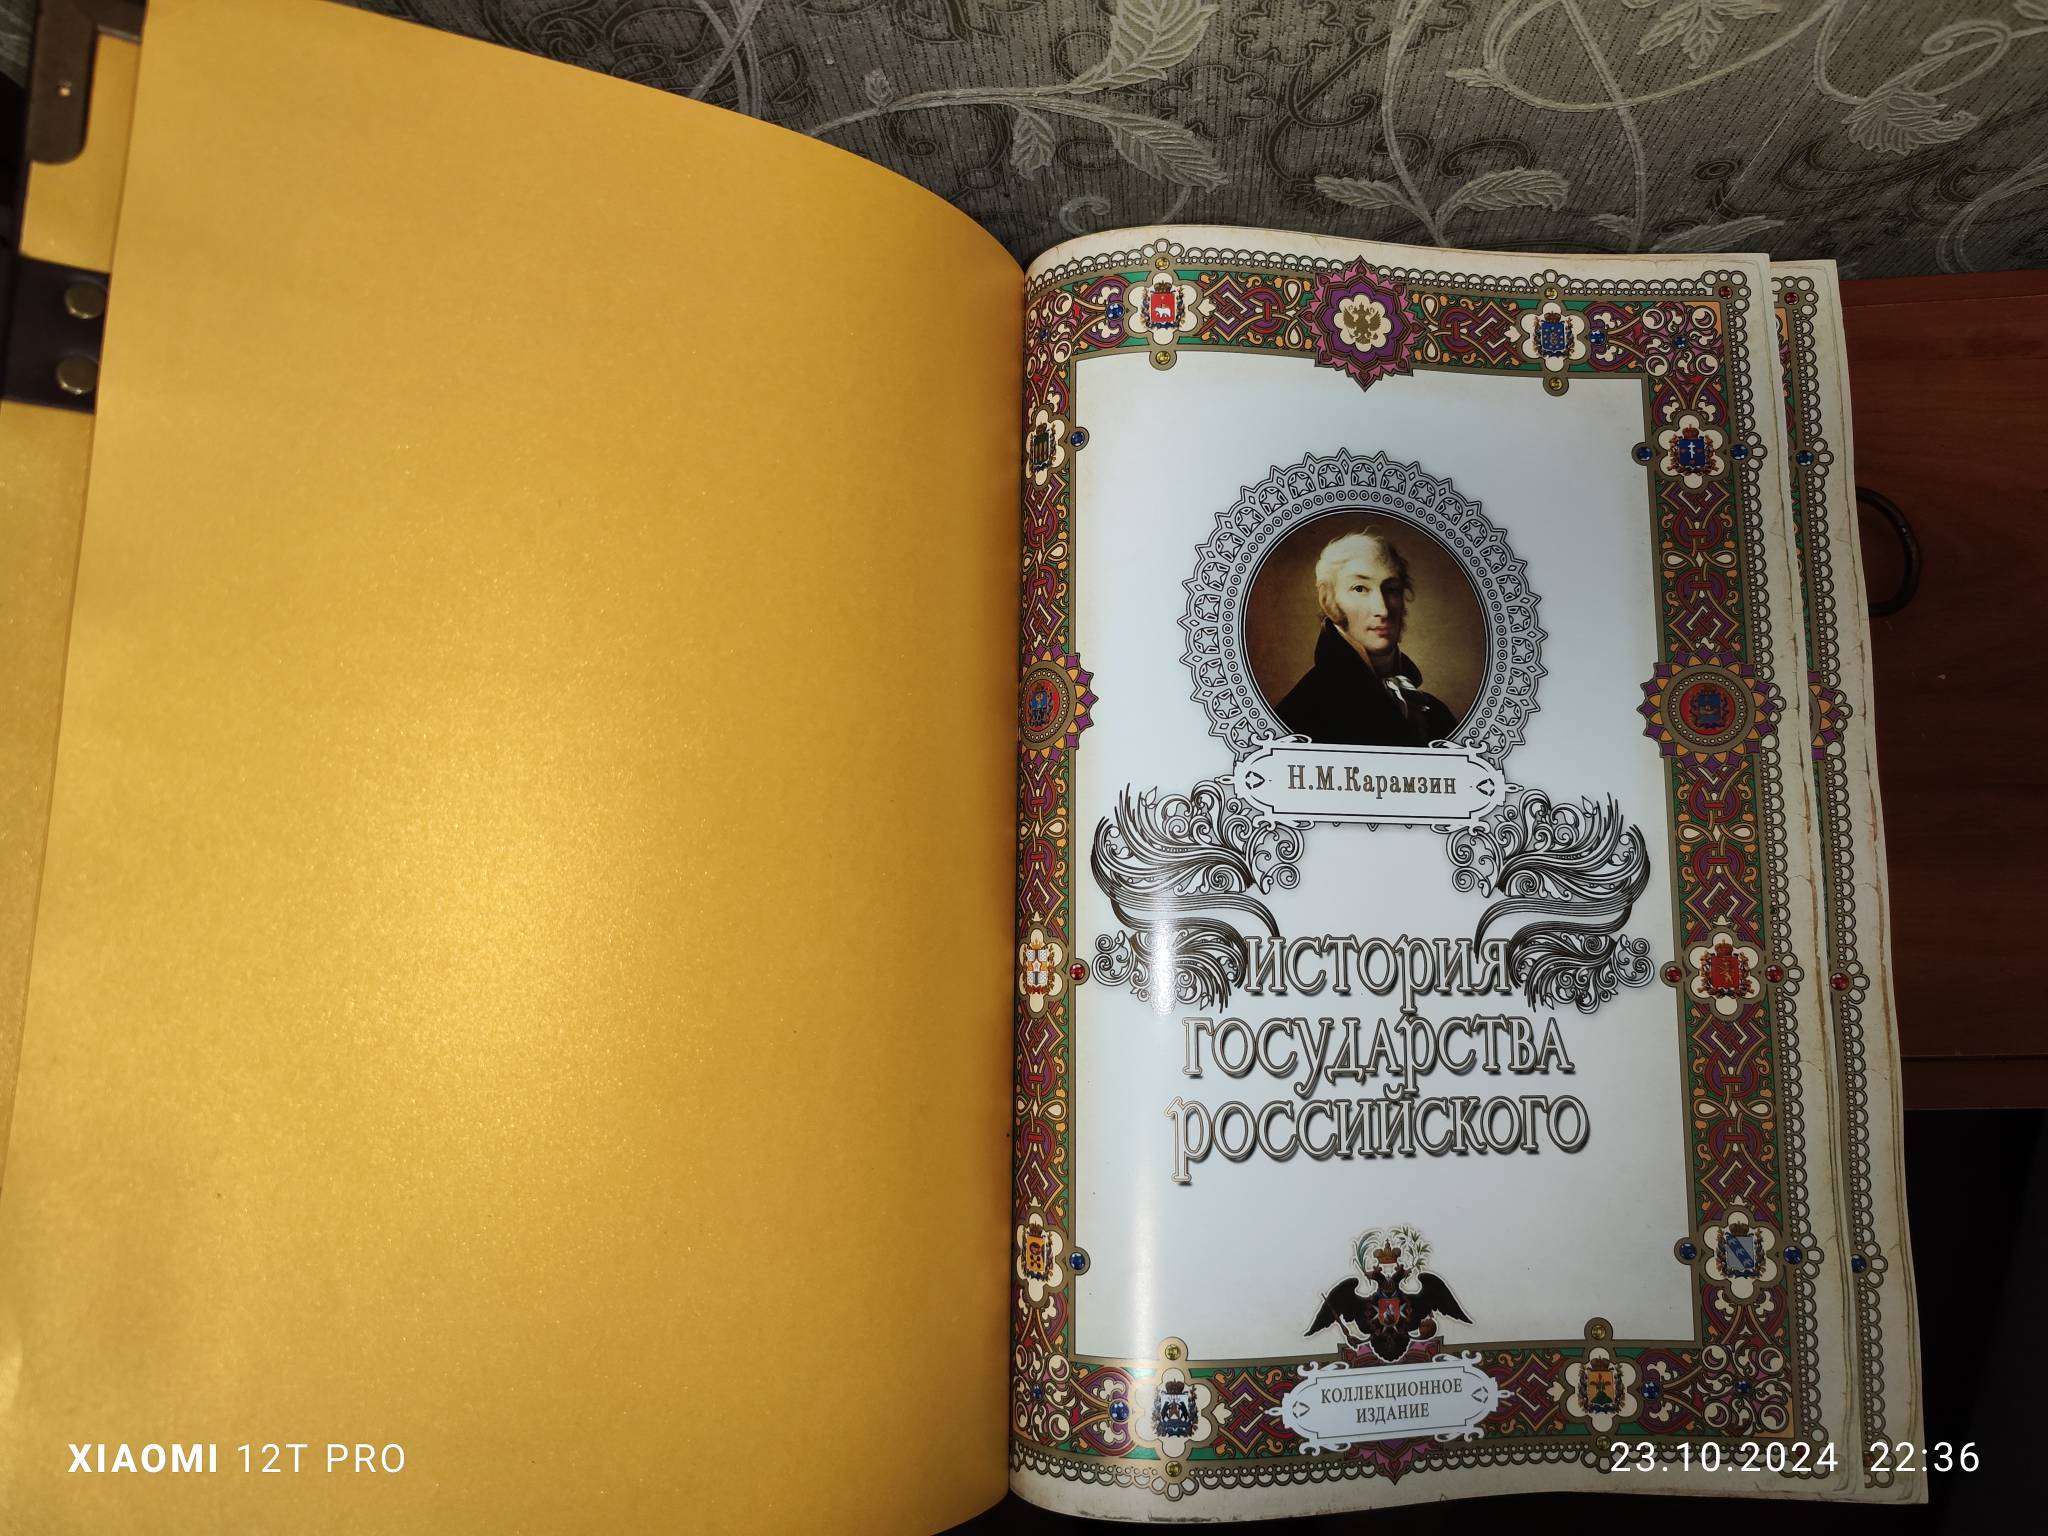 Н.М.Карамзин
ИСТОРИЯ
ГОСУДАРСТВА
РОССИЙСКОГО
КОЛЛЕКЦИОННОЕ
ИЗДАНИЕ
XIAOMI 12T PRO
23.10.2024 22:36